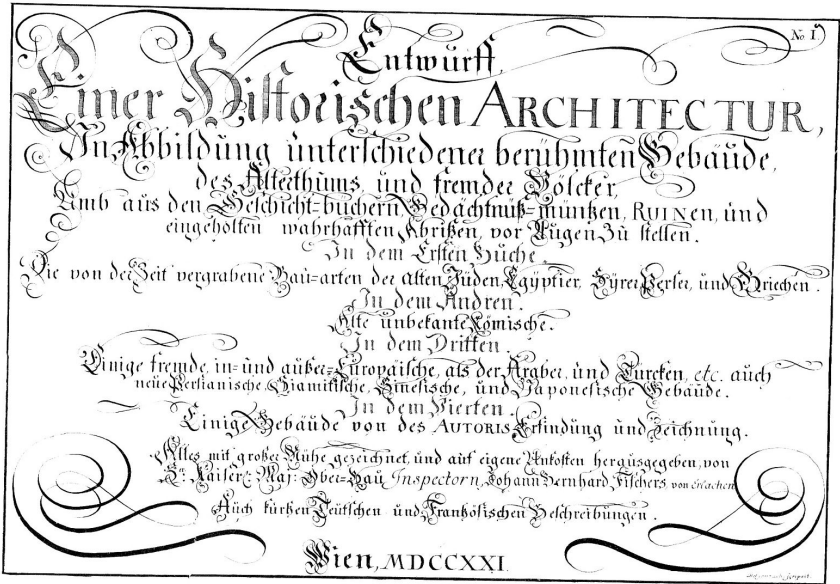 No. I.
Entwurff,
Einer Historischen ARCHITECTUR,
In Abbildung unterschiedener berühmten Gebäude,
des Alterthums, und fremder Völcker,
Umb aus den Geschicht-büchern, Gedächtnüß-müntzen, RUINEN, und
eingeholten wahrhafften Abrißen, vor Augen zu stellen.
In dem Ersten Buche.
Die von der Zeit vergrabene Bau-arten der alten Jüden, Egyptier, Syrer, Perser, und Griechen.
In dem Andren.
Alte unbekante Römische.
In dem Dritten.
Einige fremde, in- und außer-Europäische, als der Araber, und Türcken, etc. auch
neue Persianische, Siamitische, Sinesische, und Japonesische Gebäude.
In dem Vierten.
Einige Gebäude von des AUTORIS Erfindung und Zeichnung.
Alles mit großer Mühe gezeichnet, und auf eigene Unkosten herausgegeben, von
Sr. Kaiserl. Maj: Ober-Bau Inspectorn, Johann Bernhard Fischers, von Erlachen
Auch kurtzen Teutschen und Frantzösischen Beschreibungen.
Wien, MDCCXXI.